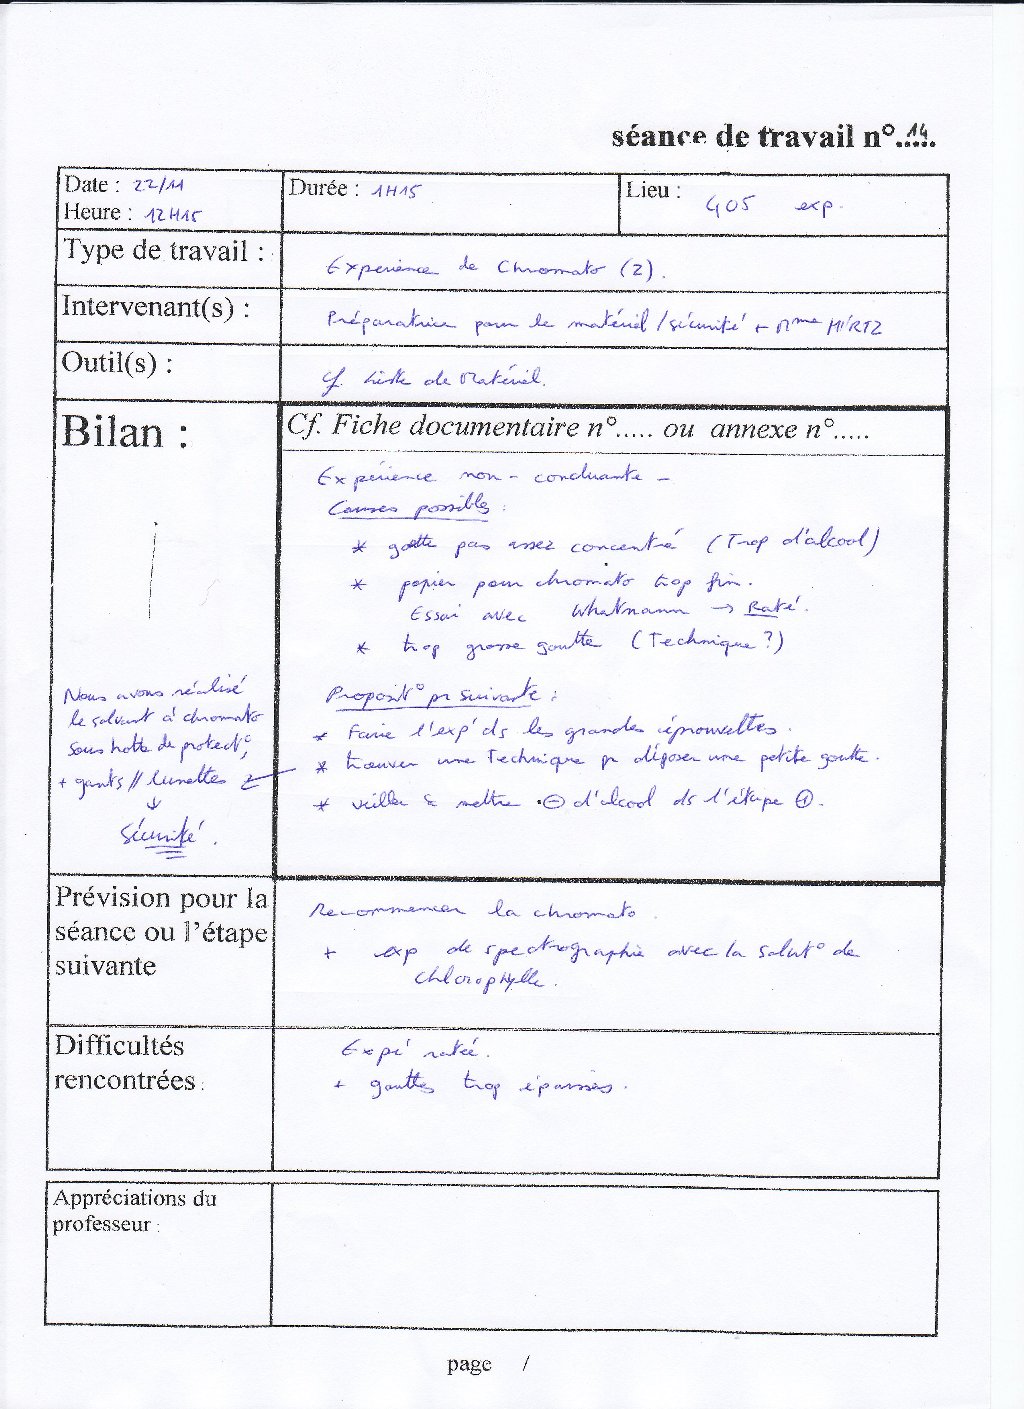 séance de travail n°..14..
Date : 22/11
Heure : 12H15
Durée : 1H15
Lieu : 405 exp.
Type de travail :
Expérience de Chromato (2).
Intervenant(s) :
Préparatrice pour le matériel / sécurité + Mme HIRTZ
Outil(s) :
cf. Liste de Matériel.
Bilan :
Cf. Fiche documentaire n°..... ou annexe n°.....
Expérience non-concluante -
Causes possibles :
* goutte pas assez concentré (Trop d'alcool)
* papier pour chromato trop fin.
Essai avec Whatmann → Raté.
* trop grosse goutte (Technique ?)
Proposit° pr suivante :
* Faire l'exp ds les grandes éprouvettes.
* trouver une Technique pr déposer une petite goutte.
* veiller à mettre ⊖ d'alcool ds l'étape ①.
Nous avons réalisé
le solvant à chromato
sous hotte de protect°,
+ gants // lunettes
↓
Sécurité.
Prévision pour la
séance ou l'étape
suivante
Recommencer la chromato.
+ exp de spectrographie avec la solut° de
chlorophylle.
Difficultés
rencontrées :
Expé ratée.
+ gouttes trop épaisses.
Appréciations du
professeur :
page /